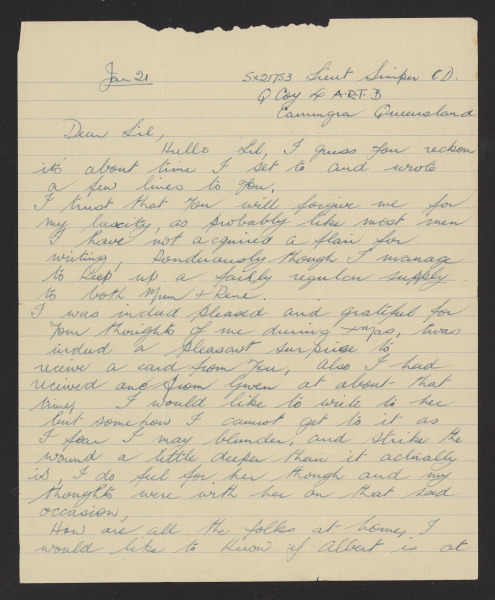 Jan 21 SX21753 Lieut Simper E D.
Q Coy 4 A.R.T. B
Canungra Queensland
Dear Lil,
Hello Lil, I guess you reckon
it's about time I set to and wrote
a few lines to you.
I trust that you will forgive me for
my laxity, as probably like most men
I have not acquired a flair for
writing, Ponderously though I manage
to keep up a fairly regular supply
to both Mum + Rene.
I was indeed pleased and grateful for
your thoughts of me during Xmas, twas
indeed a pleasant surprise to
receive a card from you, also I had
received one from Gwen at about that
time, I would like to write to her
but somehow I cannot get to it as
I fear I may blunder, and strike the
wound a little deeper than it actually
is, I do feel for her though and my
thoughts were with her on that sad
occasion,
How are all the folks at home, I
would like to know if Albert is at